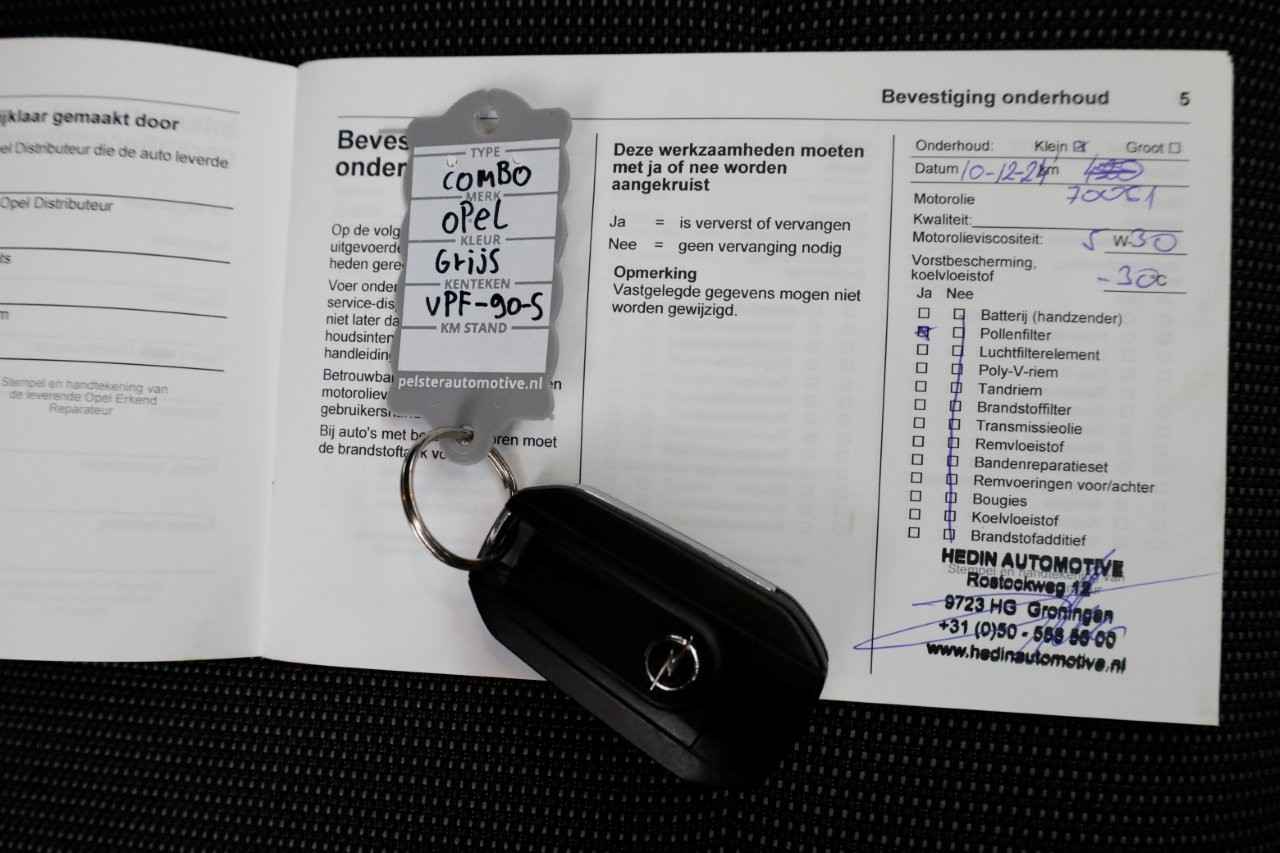 ijklaar gemaakt door
el Distributeur die de auto leverde
Opel Distributeur
Stempel en handtekening van
de leverende Opel Erkend
Reparateur
Bevestiging onderhoud 5
Beves
onder
Op de volg
uitgevoerde
heden gere
Voer onder
service-dis
niet later da
houdsinter
handleiding
Betrouwba en
motoroliev
gebruikersha
Bij auto's met be oren moet
de brandstofta k vo
TYPE
COMBO
MERK
OPEL
KLEUR
Grijs
KENTEKEN
VPF-90-S
KM STAND
pelsterautomotive.nl
Deze werkzaamheden moeten
met ja of nee worden
aangekruist
Ja = is ververst of vervangen
Nee = geen vervanging nodig
Opmerking
Vastgelegde gegevens mogen niet
worden gewijzigd.
Onderhoud: Klein Groot
Datum 10-12-24 km
70061
Motorolie
Kwaliteit:
Motorolieviscositeit: 5 W-30
Vorstbescherming,
koelvloeistof -30c
Ja Nee
Batterij (handzender)
Pollenfilter
Luchtfilterelement
Poly-V-riem
Tandriem
Brandstoffilter
Transmissieolie
Remvloeistof
Bandenreparatieset
Remvoeringen voor/achter
Bougies
Koelvloeistof
Brandstofadditief
Stempel en handtekening van
HEDIN AUTOMOTIVE
Rostockweg 12
9723 HG Groningen
+31 (0)50 - 568 56 00
www.hedinautomotive.nl